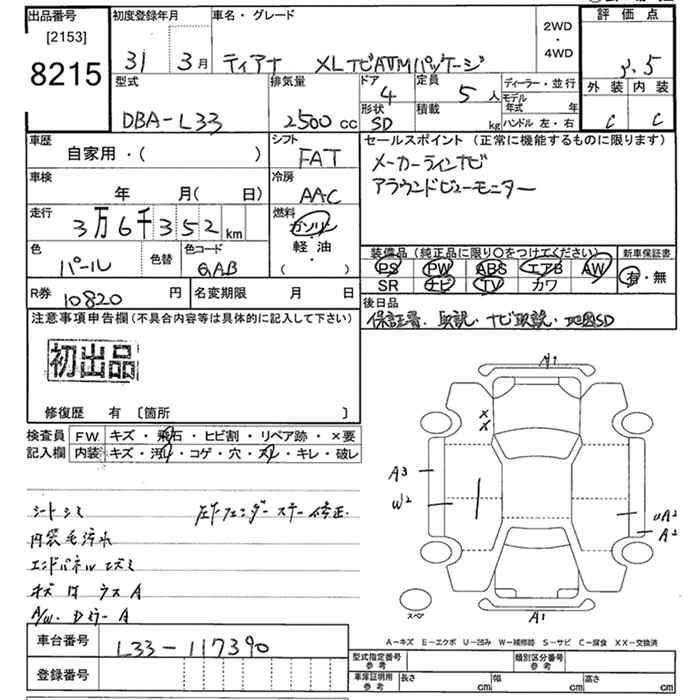 出品番号 初度登録年月 車名・グレード 2WD・4WD 評価点
[2153]
8215
31 3月 ティアナ XLナビAVMパッケージ 3.5
型式 排気量 ドア 4 定員 5人 ディーラー・並行 外装 内装
DBA-L33 2500cc 形状 SD 積載 kg モデル年式 年 ハンドル 左・右 C C
車歴 シフト セールスポイント (正常に機能するものに限ります)
自家用・( ) FAT メーカーラインナビ
車検 冷房 アラウンドビューモニター
年 月( 日) AAC
走行 燃料
3万6千352km ガソリン
軽油・( )
色 色替 色コード 装備品 (純正品に限り〇をつけてください) 新車保証書
パール QAB PS PW ABS エアB AW 有・無
SR ナビ TV カワ
R券 10820円 名変期限 月 日 後日品
保証書、取説、ナビ取説、地図SD
注意事項申告欄(不具合内容等は具体的に記入して下さい)
初出品
修復歴 有 〔箇所 〕
検査員 FW. キズ・飛石・ヒビ割・リペア跡・×要
記入欄 内装 キズ・汚れ・コゲ・穴・スレ・キレ・破レ
シートシミ 左下フェンダーステー修正
内装毛汚れ
エンドパネルエズミ
キズ凹ウスA
A/W.DミラーA
A1
××
A3
W2
UA2
A2
A1
スペア
A-キズ E-エクボ U-凹み W-補修跡 S-サビ C-腐食 XX-交換済
車台番号 L33-117390
登録番号
型式指定番号 参考 類別区分番号 参考
車庫証明用 参考 長さ cm 幅 cm 高さ cm